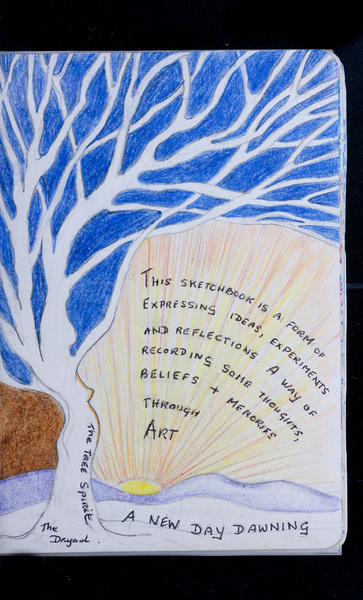 THIS SKETCHBOOK IS A FORM OF
EXPRESSING IDEAS, EXPERIMENTS
AND REFLECTIONS A WAY OF
RECORDING SOME THOUGHTS,
BELIEFS + MEMORIES
THROUGH
ART
THE TREE SPIRIT
The
Dryad.
A NEW DAY DAWNING